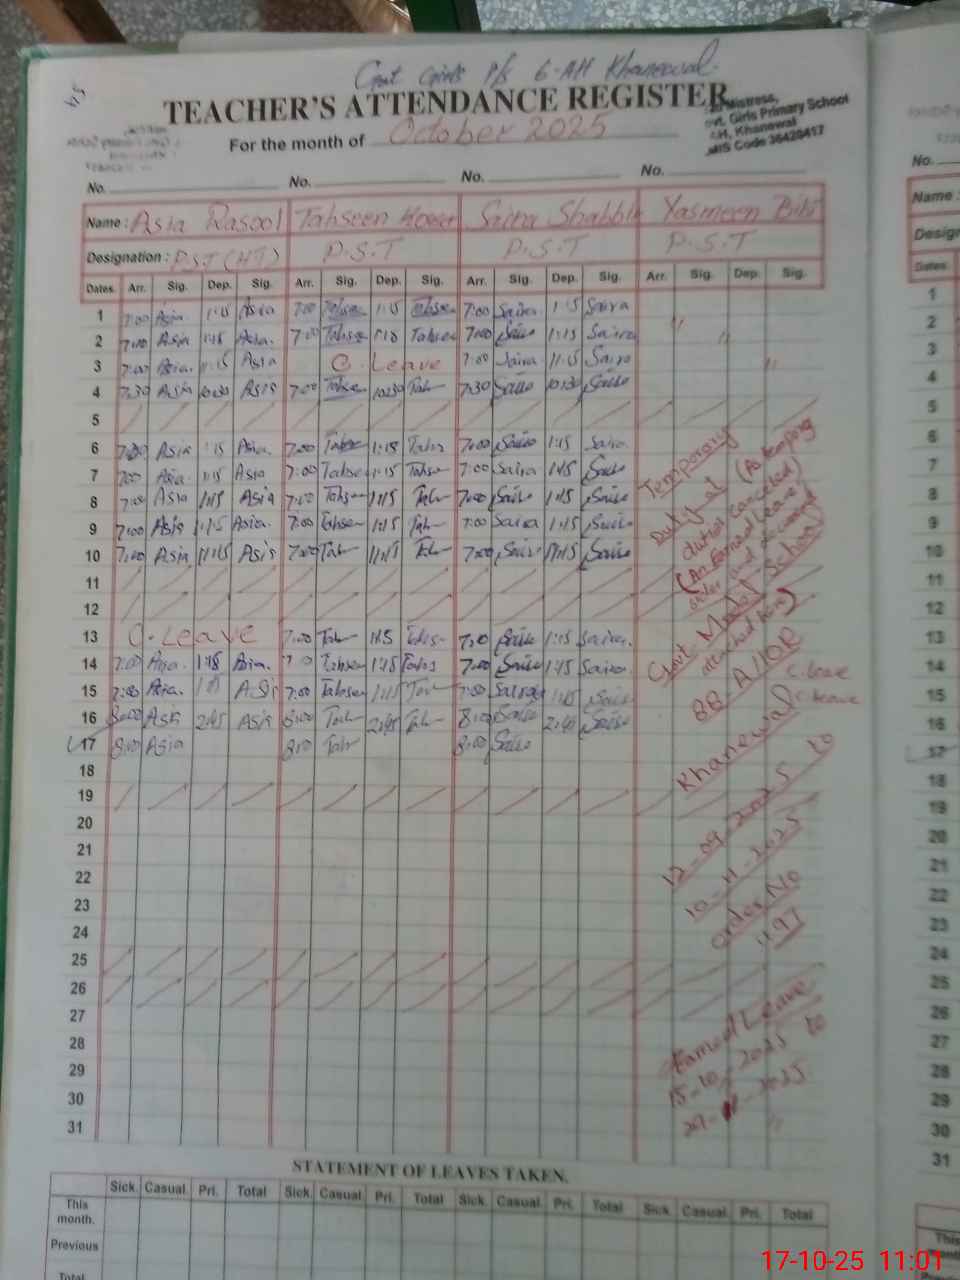 Govt Girls P/s 6-AH Khanewal.
TEACHER'S ATTENDANCE REGISTER
For the month of October 2025
Mistress,
Girls Primary School
H, Khanewal
MIS Code 36420417
No. No. No. No.
Name: Asia Rasool Tahseen Koser Saira Shabbir Yasmeen Bibi
Designation: P.S.T (HT) P.S.T P.S.T P.S.T
Dates. Arr. Sig. Dep. Sig. Arr. Sig. Dep. Sig. Arr. Sig. Dep. Sig. Arr. Sig. Dep. Sig.
1 7:00 Asia. 1:15 Asia 7:00 Tahseen 1:15 Tahseen 7:00 Saira 1:15 Saira
2 7:00 Asia 1:15 Asia. 7:00 Tahsee 1:15 Tahseen 7:00 Saira 1:15 Saira
3 7:00 Asia. 11:15 Asia C. Leave 7:00 Saira 11:15 Saira
4 7:30 Asia 10:30 Asia 7:00 Tahsee 10:30 Tah 7:30 Saira 10:30 Saira
5
6 7:00 Asia 1:15 Asia. 7:00 Tahsee 1:15 Tahs 7:00 Saira 1:15 Saira
7 7:00 Asia 1:15 Asia 7:00 Tahsee 1:15 Tahse 7:00 Saira 1:15 Saira
8 7:00 Asia 1:15 Asia 7:00 Tahse 1:15 Tah 7:00 Saira 1:15 Saira
9 7:00 Asia 1:15 Asia. 7:00 Tahsee 1:15 Tah 7:00 Saira 1:15 Saira
10 7:00 Asia 11:15 Asia 7:00 Tah 11:15 Tah 7:00 Saira 11:15 Saira
11
12
13 C. Leave 7:00 Tah 1:15 Tahse 7:00 Saira 1:15 Saira
14 7:00 Asia. 1:15 Asia. Tahsee 1:15 Tahs 7:00 Saira 1:15 Saira C. Leave
15 7:00 Asia. Asia 7:00 Tahsee 1:15 Tah 7:00 Saira 1:15 Saira C. Leave
16 8:00 Asia 2:45 Asia 8:00 Tah 2:45 Tah 8:00 Saira 2:45 Saira
17 8:00 Asia 8:00 Tah 8:00 Saira
18
19
20
21
22
23
24
25
26
27
28
29
30
31
Temporary
Duty at (As Temporary
duties canceled)
(An Earned Leave
order and document
attached here)
Govt Model School
88-A/10R
Khanewal
12-09-2025 to
10-11-2025
Order No
1197
Earned Leave
15-10-2025 to
2025
STATEMENT OF LEAVES TAKEN.
Sick. Casual. Pri. Total Sick. Casual. Pri. Total Sick. Casual. Pri. Total Sick. Casual. Pri. Total
This month.
Previous
Total
No.
Name:
Design
Dates.
1
2
3
4
5
6
7
8
9
10
11
12
13
14
15
16
17
18
19
20
21
22
23
24
25
26
27
28
29
30
31
This
17-10-25 11:01